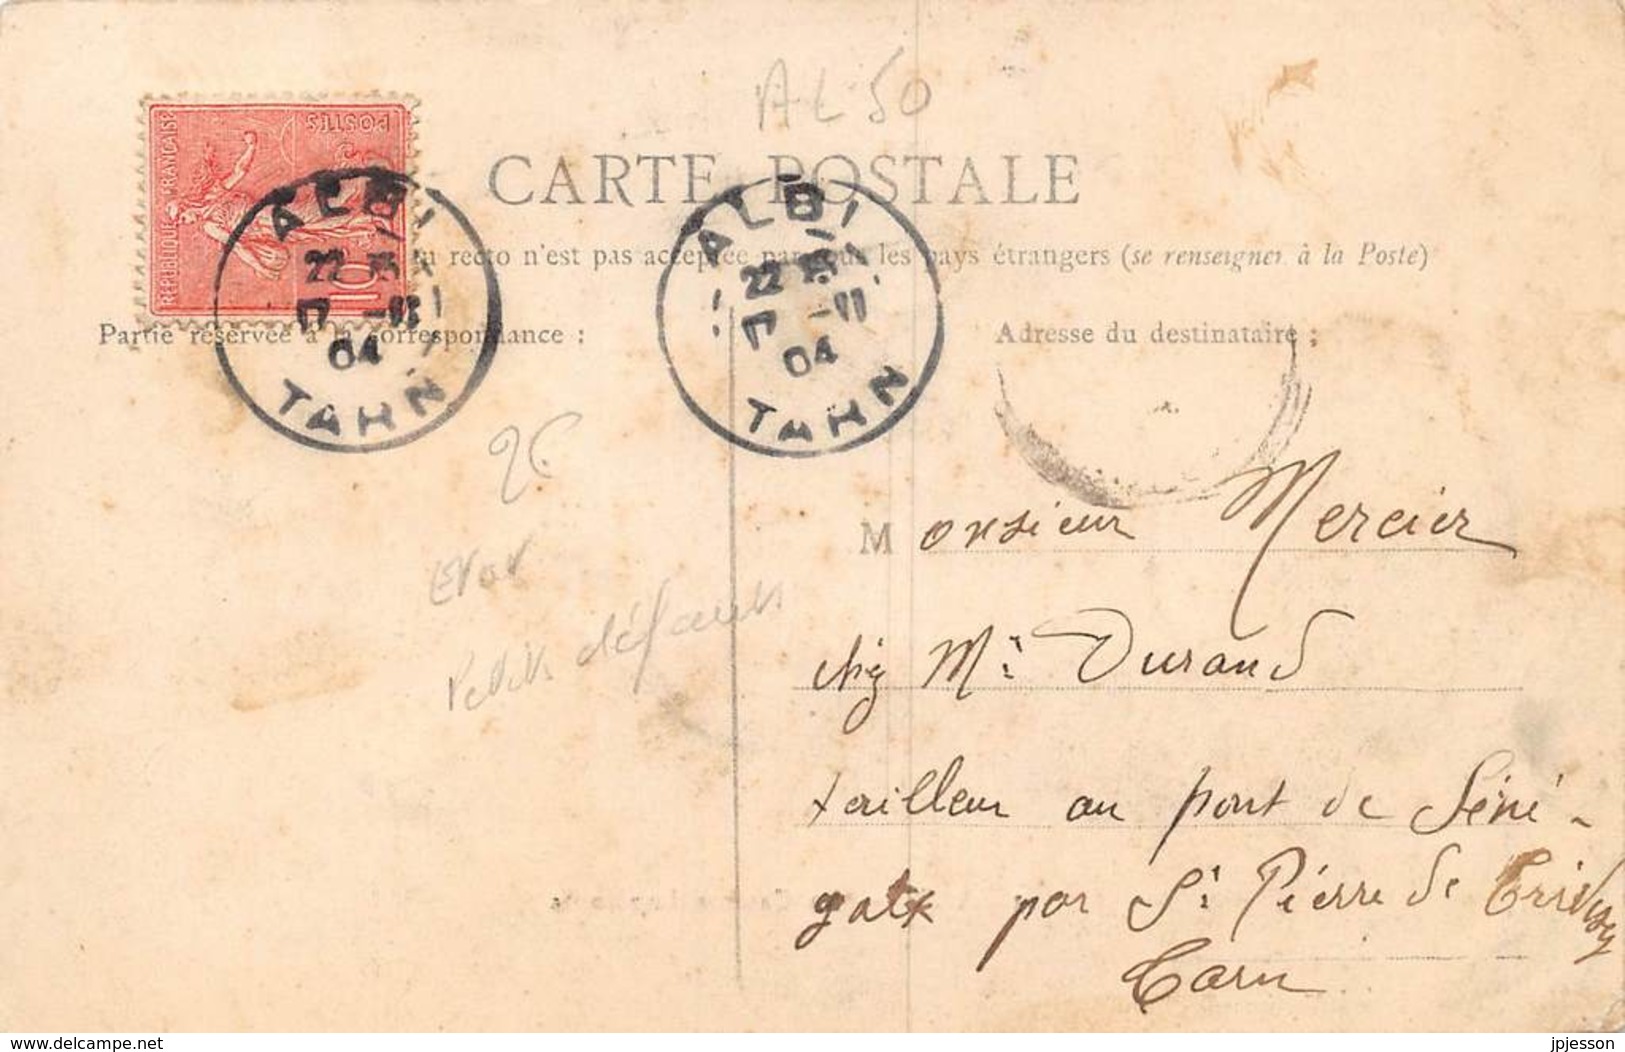 AL 50
CARTE POSTALE
POSTES
REPUBLIQUE FRANÇAISE
10
ALBI
22
17
04
TARN
ALBI
22
17
04
TARN
recto n'est pas acceptée par tous les pays étrangers (se renseigner à la Poste)
Partie réservée à la correspondance :
Adresse du destinataire :
Petits défauts
Monsieur Mercier
chez Mr Durand
tailleur au pont de Séné-
gatx par St Pierre de Trivisy
Tarn
www.delcampe.net
jpjesson